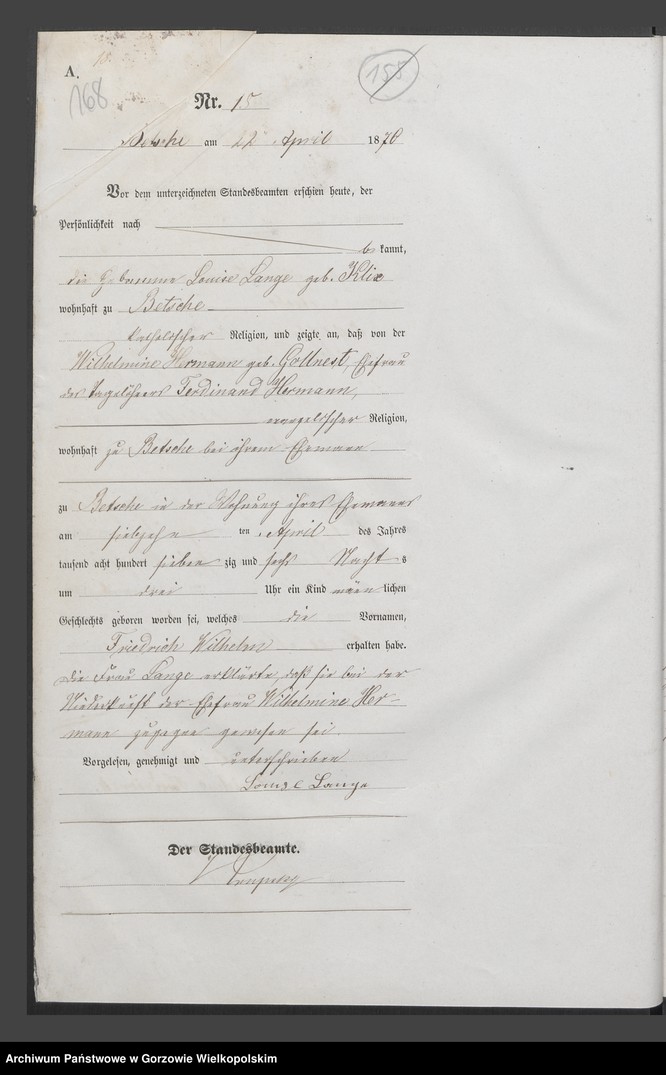 A.
168
155
Nr. 15
Betsche am 22 April 1876
Vor dem unterzeichneten Standesbeamten erschien heute, der
Persönlichkeit nach
be kannt,
die Hebamme Louise Lange geb. Klix
wohnhaft zu Betsche
katholischer Religion, und zeigte an, daß von der
Wilhelmine Hermann geb. Gollnest, Ehefrau
des Tagelöhners Ferdinand Hermann,
evangelischer Religion,
wohnhaft zu Betsche bei ihrem Ehemann
zu Betsche in der Wohnung ihres Ehemannes
am siebzehn ten April des Jahres
tausend acht hundert sieben zig und sechs Nacht s
um drei Uhr ein Kind männ lichen
Geschlechts geboren worden sei, welches die Vornamen,
Friedrich Wilhelm erhalten habe.
Die Frau Lange erklärte, daß sie bei der
Niederkunft der Ehefrau Wilhelmine Her-
mann zugegen gewesen sei
Vorgelesen, genehmigt und unterschrieben
Louise Lange
Der Standesbeamte.
Archiwum Państwowe w Gorzowie Wielkopolskim